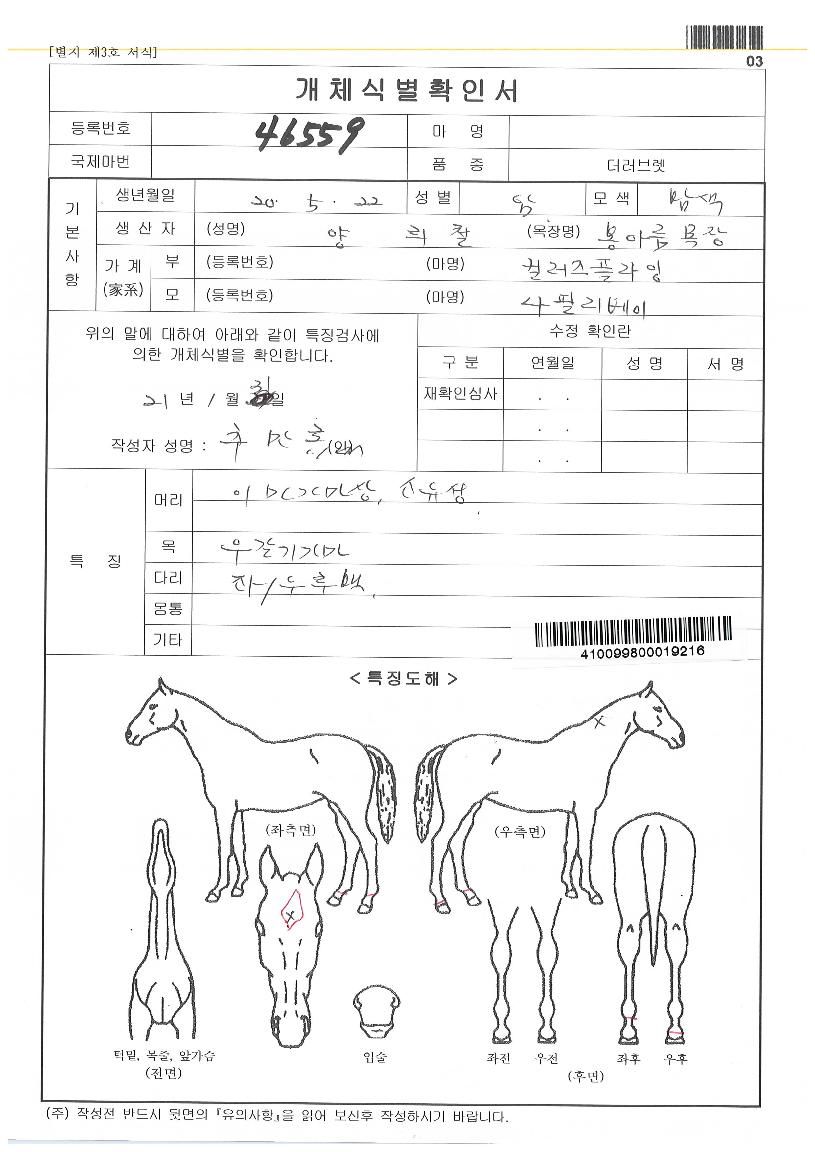 [별지 제3호 서식]
03
개체식별확인서
등록번호 46559 마 명
국제마번 품 종 더러브렛
기본사항
생년월일 20. 5. 22 성별 암 모색 밤색
생산자 (성명) 양 희 찰 (목장명) 봉아름목장
가계(家系) 부 (등록번호) (마명) 컬러즈플라잉
모 (등록번호) (마명) 샤필리베이
위의 말에 대하여 아래와 같이 특징검사에
의한 개체식별을 확인합니다.
21 년 1 월 일
작성자 성명 :
수정 확인란
구분 연월일 성명 서명
재확인심사 . .
. .
. .
특 징
머리
목 우갈기가마
다리 좌/우후백.
몽통
기타
410099800019216
< 특징도해 >
(좌측면) (우측면)
턱밑, 목줄, 앞가슴 입술 좌진 우전 좌후 우후
(전면) (후면)
(주) 작성전 반드시 뒷면의 『유의사항』을 읽어 보신후 작성하시기 바랍니다.